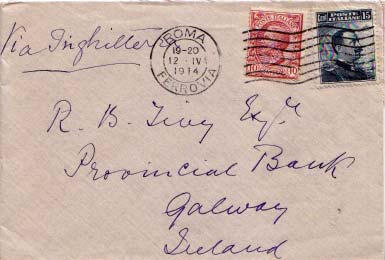 Via Inghilterra
ROMA
19-20
12·IV
1914
FERROVIA
POSTE ITALIANE
10
10
POSTE
ITALIANE
Cent.
15
R. B. Tivy Esqr
Provincial Bank
Galway
Ireland